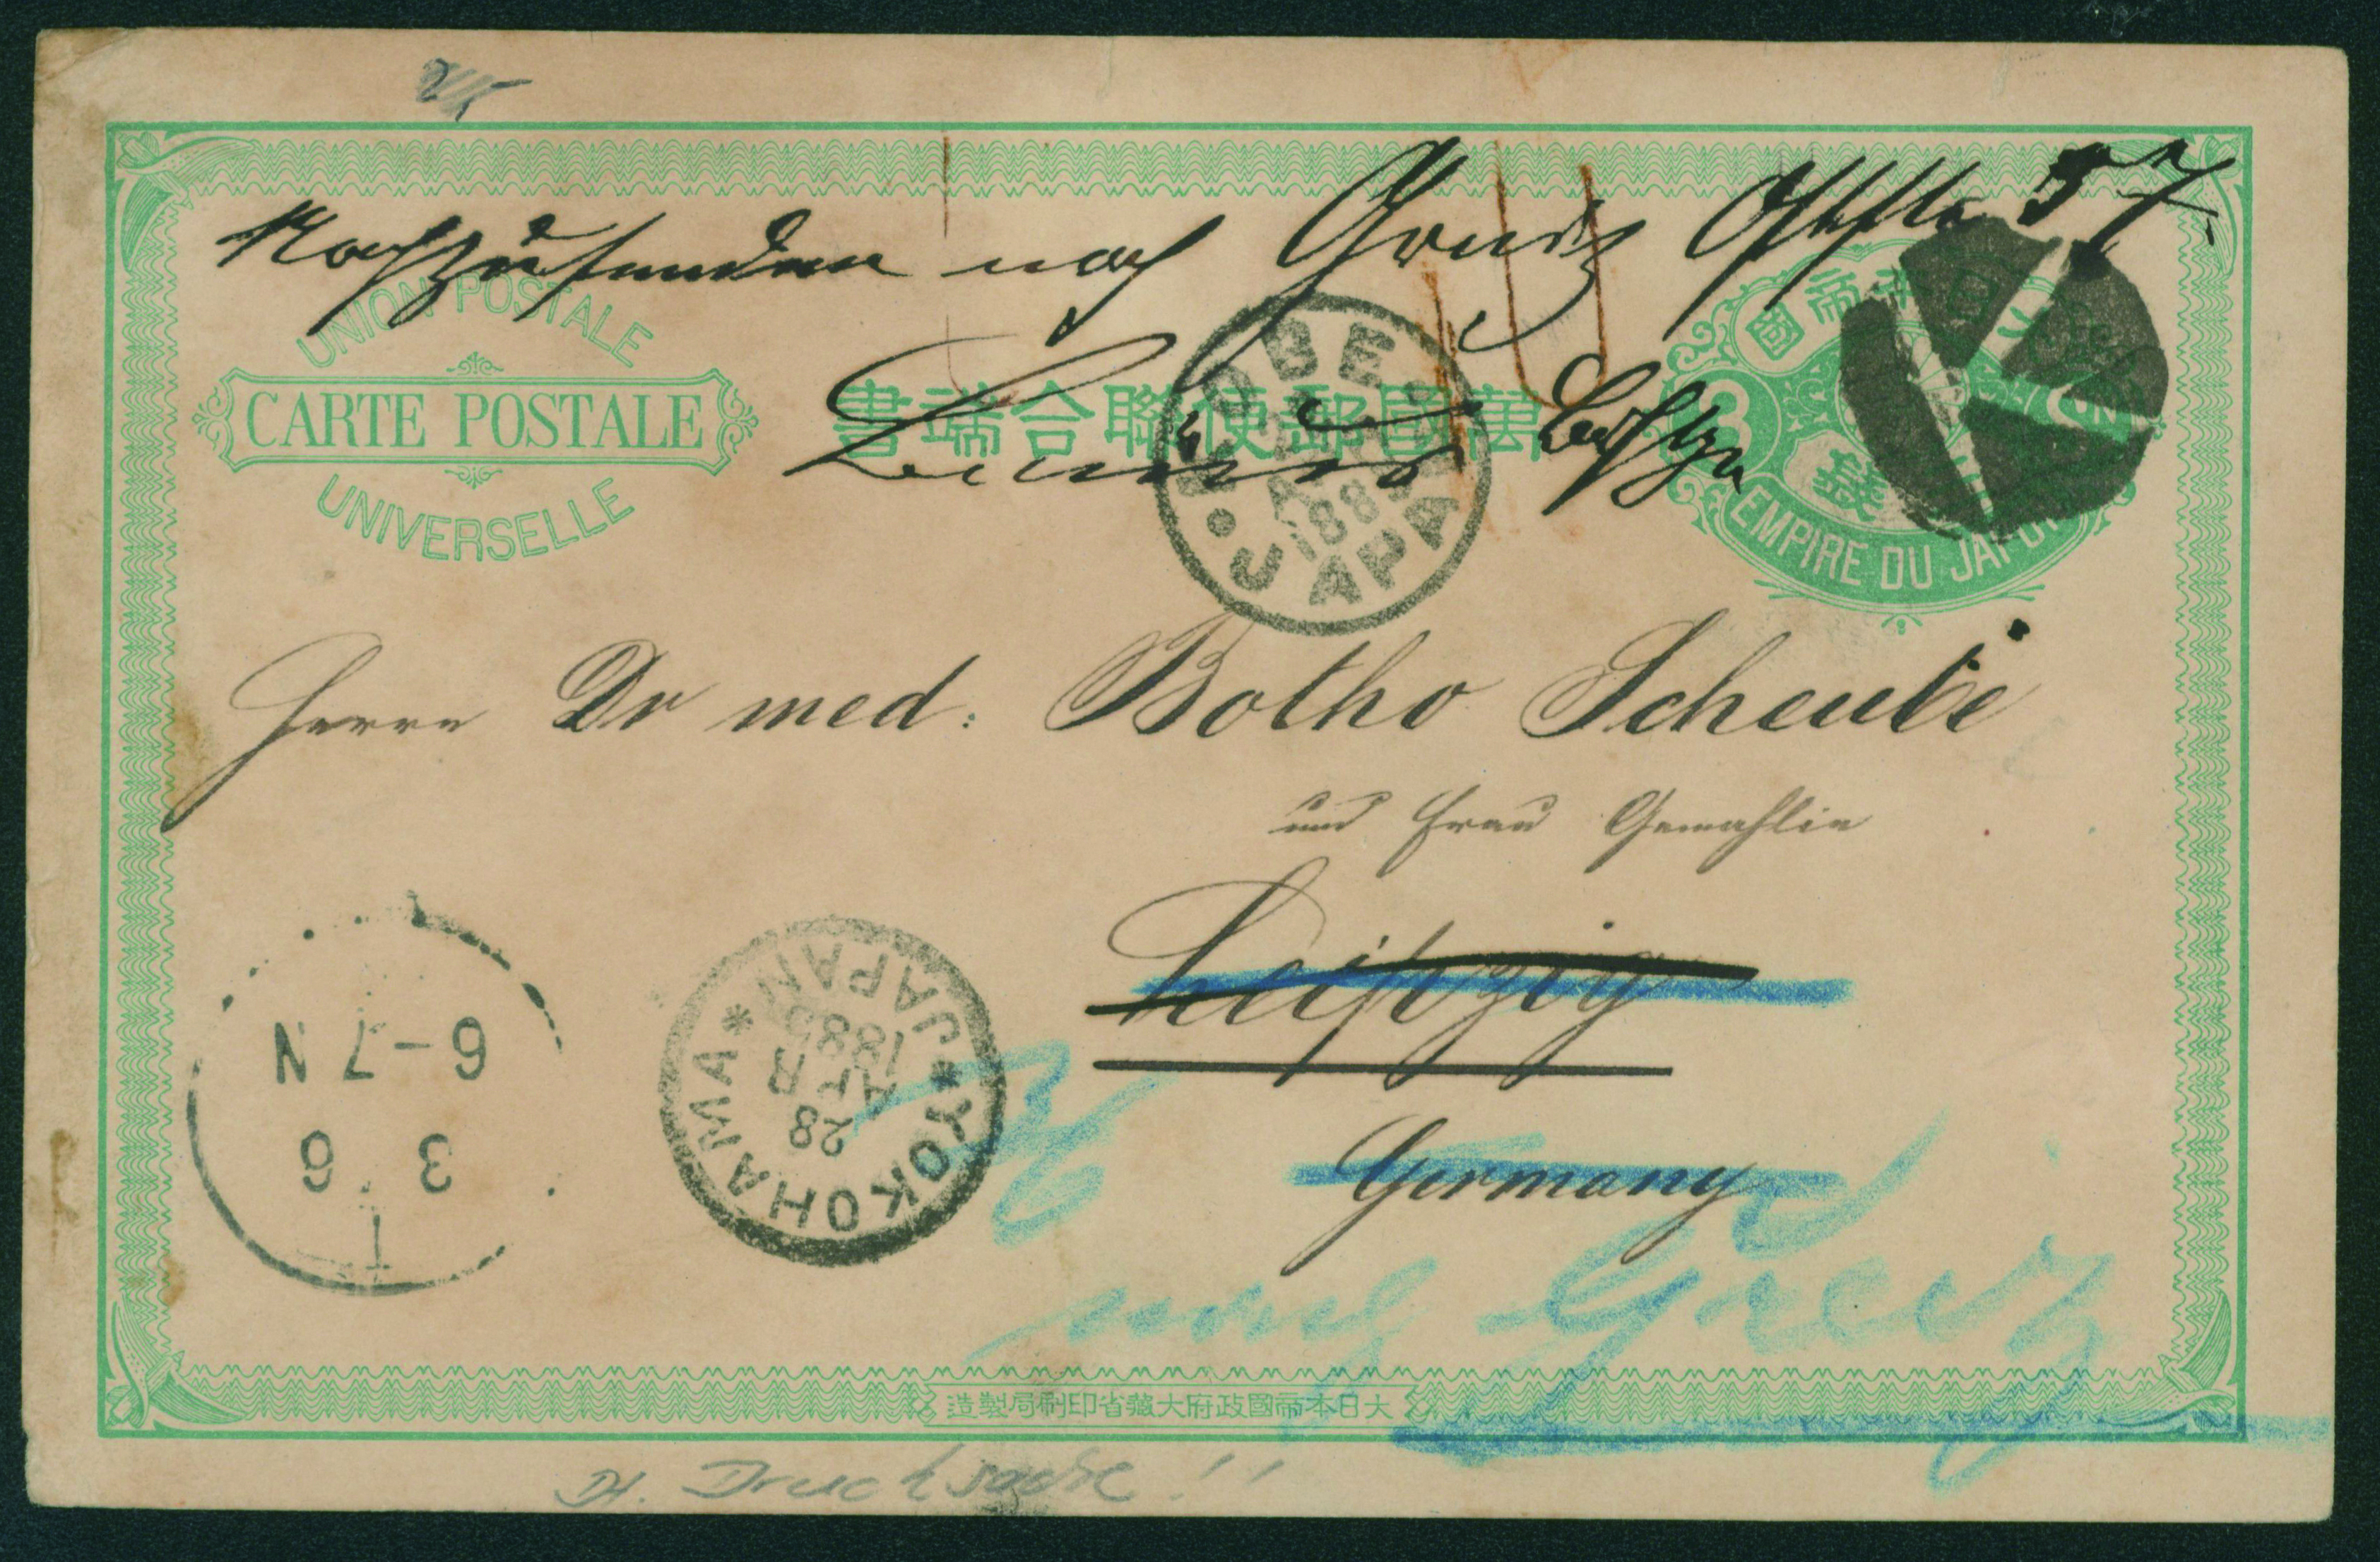 Nachzusenden nach Greiz
57
UNION POSTALE
CARTE POSTALE
UNIVERSELLE
萬國郵便聯合端書
KOBE
1885
JAPAN
大日本帝國
3
錢
EMPIRE DU JAPON
Herrn Dr med: Botho Scheube
und Frau Gemahlin
Leipzig
Germany
YOKOHAMA JAPAN
28
APR
1885
3 6
6-7 N
nach Greiz
大日本帝國政府大藏省印刷局製造
Drucksache!!